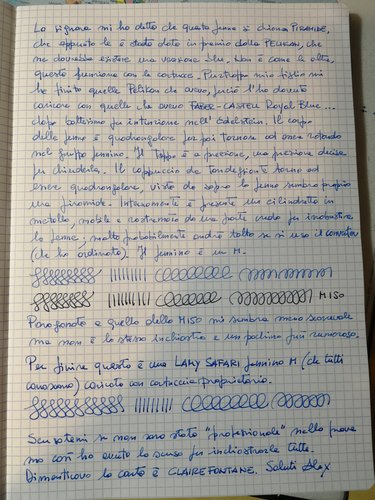 La signora mi ha detto che questa penna si chiama PIRAMIDE,
che appunto le è stata data in premio dalla PELIKAN, che
ne dovrebbe esistere una versione blu. Non è come le altre,
questa funziona con le cartucce. Purtroppo mio figlio mi
ha finito quelle Pelikan che avevo, perciò l'ho dovuta
caricare con quelle che avevo FABER-CASTELL Royal Blue...
dopo battesimo fu intinzione nell'Edelstein. Il corpo
della penna è quadrangolare per poi tornare ad esse rotondo
nel gruppo pennino. Il Tappo è a pressione, una pressione decisa
per chiuderla. Il cappuccio da tondeggiante torna ad
essere quadrangolare, vista da sopra la penna sembra proprio
una piramide. Internamente è presente un cilindretto in
metallo, mobile e rastremato da una parte credo per irrobustire
la penna, molto probabilmente andrà tolto se si usa il converter
(che ho ordinato). Il pennino è un M.
M150
Paragonato a quello della M150 mi sembra meno scorrevole
ma non è lo stesso inchiostro e un pochino più rumoroso.
Per finire questa è una LAMY SAFARI pennino M (che tutti
conoscono) caricata con cartuccia proprietaria.
Scusatemi se non sono stato "professionale" nelle prove
ma così ho avuto la scusa per inchiostrarle tutte.
Dimenticavo la carta è CLAIREFONTANE. Saluti Alex